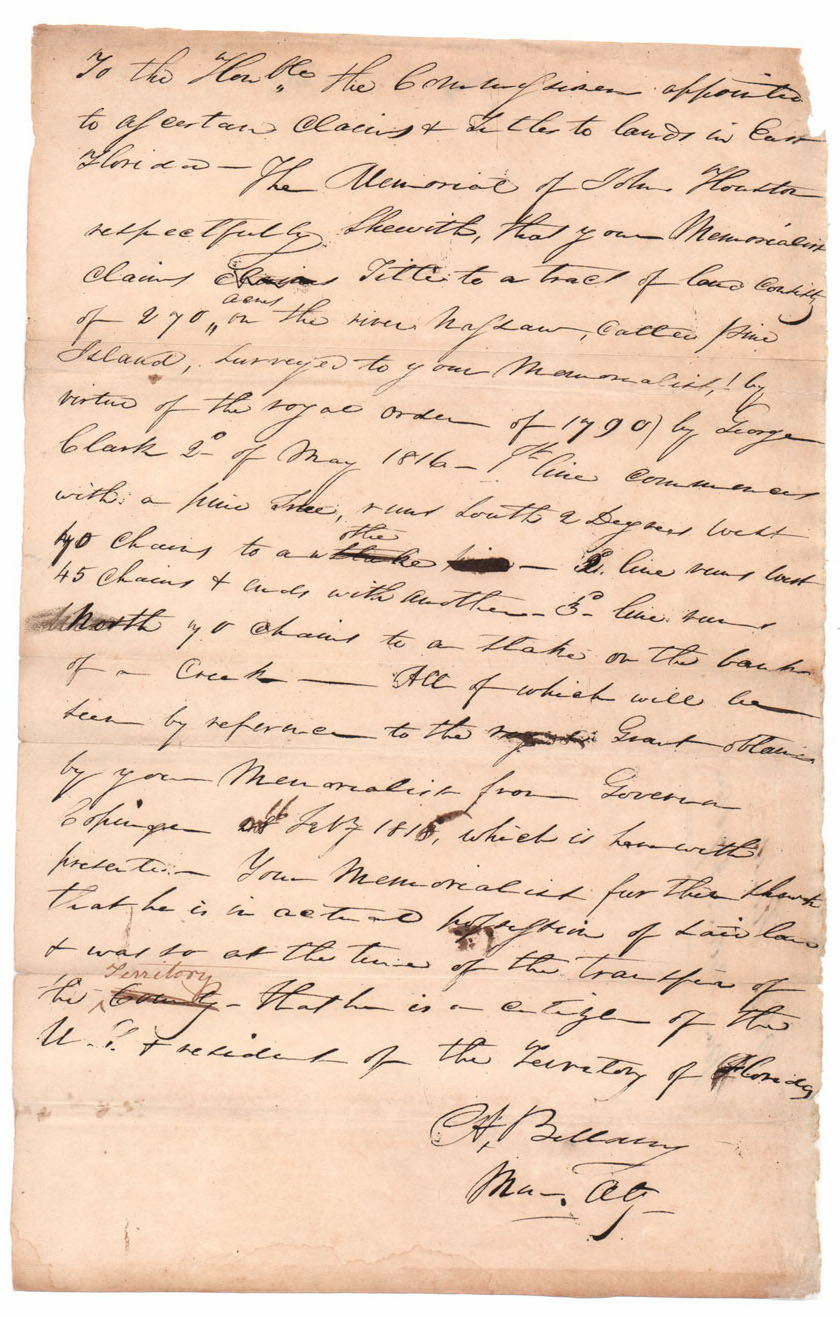 To the Hon.ble the Commissioners appointed
to ascertain claims & Titles to lands in East
Florida — The Memorial of John Houston
respectfully Sheweth, that your Memorialist
claims Title to a tract of land Consistg
of 270 acres on the river Nassaw, called Pine
Island, surveyed to your Memorialist, (by
virtue of the royal order of 1790) by George
Clark 2d of May 1816 — 1st line commences
with a pine Tree, runs South 2 Degrees West
70 chains to a stake — 2d. line runs West
45 Chains & ends with another — 3d line runs
North 70 chains to a stake on the bank
of a Creek — All of which will be
seen by reference to the Grant obtained
by your Memorialist from Governor
Copinger Feby 1816, which is herewith
presented — Your Memorialist further shews
that he is in actual possession of said land
& was so at the time of the transfer of
the Territory — that he is a citizen of the
U. S. & resident of the Territory of Florida
A, Bellamy
Atty